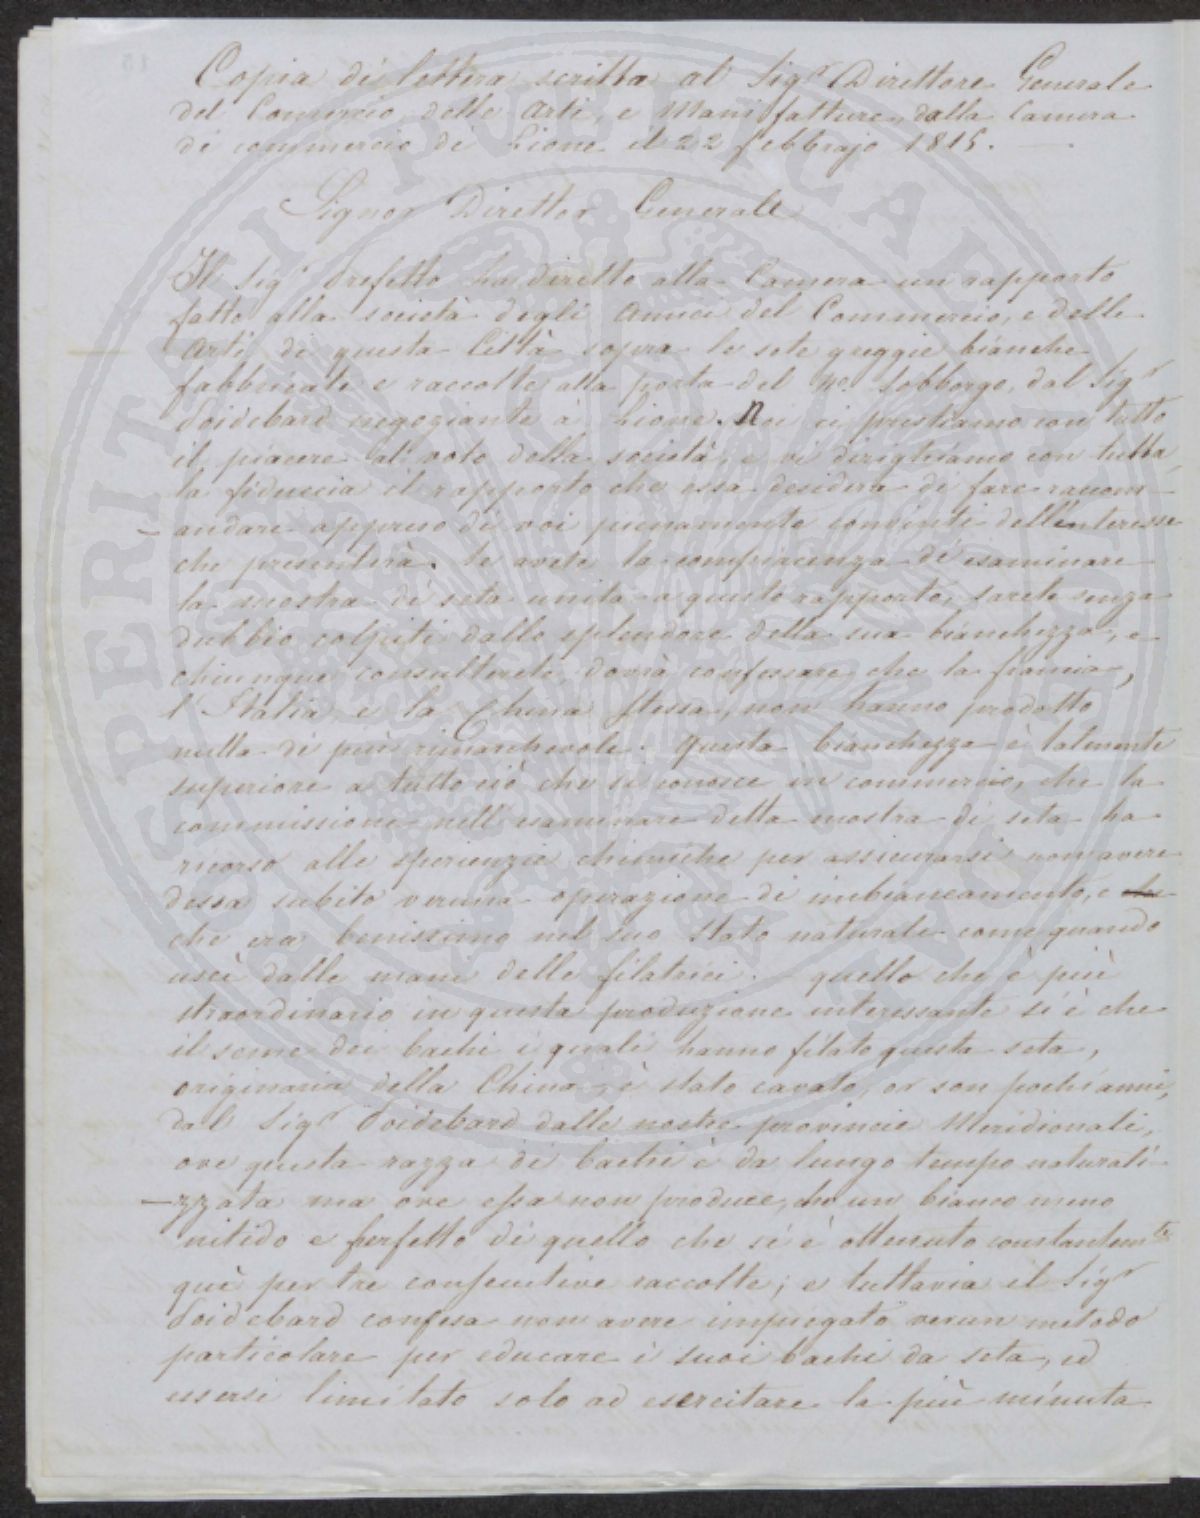 Copia di lettera scritta al Sig.r Direttore Generale
del Commercio, delle Arti, e Manifatture, dalla Camera
di commercio di Lione il 22 febbrajo 1815.
Signor Direttor Generale
Il Sig.r Prefetto ha diretto alla Camera un rapporto
fatto alla società degli Amici del Commercio, e delle
Arti di questa Città sopra le sete greggie bianche
fabbricate e raccolte alla porta del no. Sobborgo, dal Sig.r
Poidebard negoziante à Lione. Noi ci prestiamo con tutto
il piacere al voto della società, e vi dirighiamo con tutta
la fiduccia il rapporto che essa desidera di fare raccom-
-andare appresso di voi pienamente convinti dell'interesse
che presenterà. Se avete la compiacenza di esaminare
la mostra di seta unita a questo rapporto, sarete senza
dubbio colpiti dallo splendore della sua bianchezza, e
chiunque consulterete, dovrà confessare che la francia,
l'Italia e la China stessa, non hanno prodotto
nulla di più rimarchevole. Questa bianchezza è talmente
superiore a tutto ciò che si conosce in commercio, che la
commissione nell'esaminare detta mostra di seta ha
ricorso alle sperienzie chimiche per assicurarsi non avere
dessa subito veruna operazione di imbiancamento, e che
che era benissimo nel suo stato naturale come quando
uscì dalle mani delle filatrici. quello che è più
straordinario in questa produzione interessante si è che
il seme dei bachi i quali hanno filato questa seta,
originaria della China, è stato cavato, or son pochi anni,
dal Sig.r Poidebard dalle nostre provincie Meridionali,
ove questa razza di bachi è da lungo tempo naturali-
-zzata ma ove essa non produce, che un bianco meno
nitido e perfetto di quello che si è ottenuto constantem.te
quì per tre consecutive raccolte; e tuttavia il Sig.r
Poidebard confesa non avere impiegato verun metodo
particolare per educare i suoi bachi da seta, ed
essersi limitato solo ad esercitare la più minuta